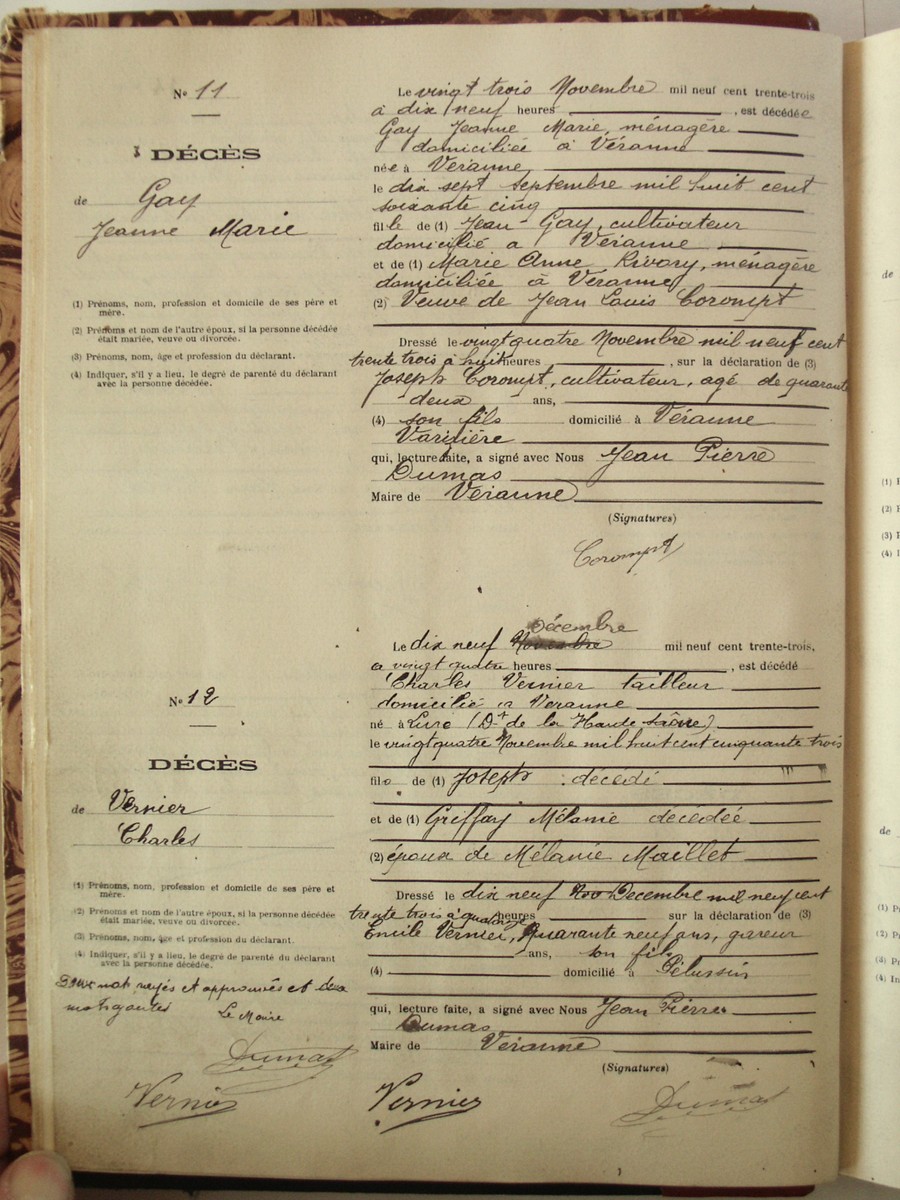 N° 11
DÉCÈS
de Gay
Jeanne Marie
(1) Prénoms, nom, profession et domicile de ses père et
mère.
(2) Prénoms et nom de l'autre époux, si la personne décédée
était mariée, veuve ou divorcée.
(3) Prénoms, nom, âge et profession du déclarant.
(4) Indiquer, s'il y a lieu, le degré de parenté du déclarant
avec la personne décédée.
Le vingt trois Novembre mil neuf cent trente-trois
à dix neuf heures , est décédée
Gay Jeanne Marie, ménagère
domiciliée à Véranne
née à Véranne
le dix sept septembre mil huit cent
soixante cinq
fille de (1) Jean Gay, cultivateur
domicilié a Véranne
et de (1) Marie Anne Rivory, ménagère
domiciliée à Véranne
(2) Veuve de Jean Louis Corompt
Dressé le vingt quatre Novembre mil neuf cent
trente trois à huit heures , sur la déclaration de (3)
Joseph Corompt, cultivateur, agé de quarante
deux ans,
(4) son fils domicilié à Véranne
qui, lecture faite, a signé avec Nous Jean Pierre
Dumas
Maire de Véranne
(Signatures)
Corompt
N° 12
DÉCÈS
de Vernier
Charles
(1) Prénoms, nom, profession et domicile de ses père et
mère.
(2) Prénoms et nom de l'autre époux, si la personne décédée
était mariée, veuve ou divorcée.
(3) Prénoms, nom, âge et profession du déclarant.
(4) Indiquer, s'il y a lieu, le degré de parenté du déclarant
avec la personne décédée.
Deux mots rayés et approuvés et deux
Le Maire
Dumas
Vernier
Décembre
Le dix neuf Novembre mil neuf cent trente-trois,
a vingt quatre heures , est décédé
Charles Vernier tailleur
domicilié a Veranne
né à Lure (Dt de la Haute Saône)
le vingt quatre Novembre mil huit cent cinquante trois
fils de (1) Joseph décédé
et de (1) Griffay Mélanie décédée
(2) époux de Mélanie Maillet
Dressé le dix neuf Nov Decembre mil neuf cent
trente trois à quatorze heures sur la déclaration de (3)
Emile Vernier, Quarante neuf ans, gareur
ans, son fils
(4) domicilié à Pélussin
qui, lecture faite, a signé avec Nous Jean Pierre
Dumas
Maire de Véranne
(Signatures)
Vernier
Dumas